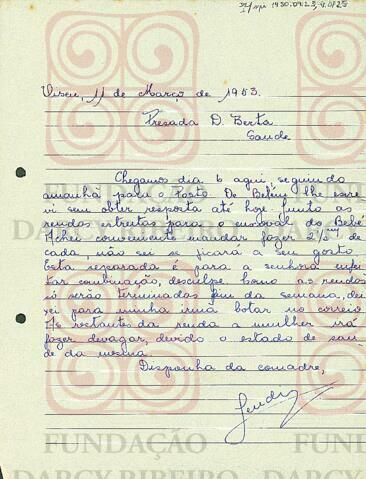 Viseu, 11 de Março de 1953.
Presada D. Berta
Saude
Chegamos dia 6 aqui, seguindo
amanhã para o Posto. De Belém lhe escre
vi sem obter resposta até hoje junto as
rendas estreitas para o enxoval do Bebê
Achei conveniente mandar fazer 2½ mt de
cada, não sei se ficará a seu gosto
Esta separada é para a senhora enfei
tar combinação, desculpe como as rendas
só serão terminadas fim da semana, dei
xei para minha irmã botar no correio
As restantes da renda a mulher irá
fazer devagar, devido o estado de sau
de da mesma
Disponha da comadre,
FUNDAÇÃO
DARCY RIBEIRO
FUNDAÇÃO
DARCY RIBEIRO